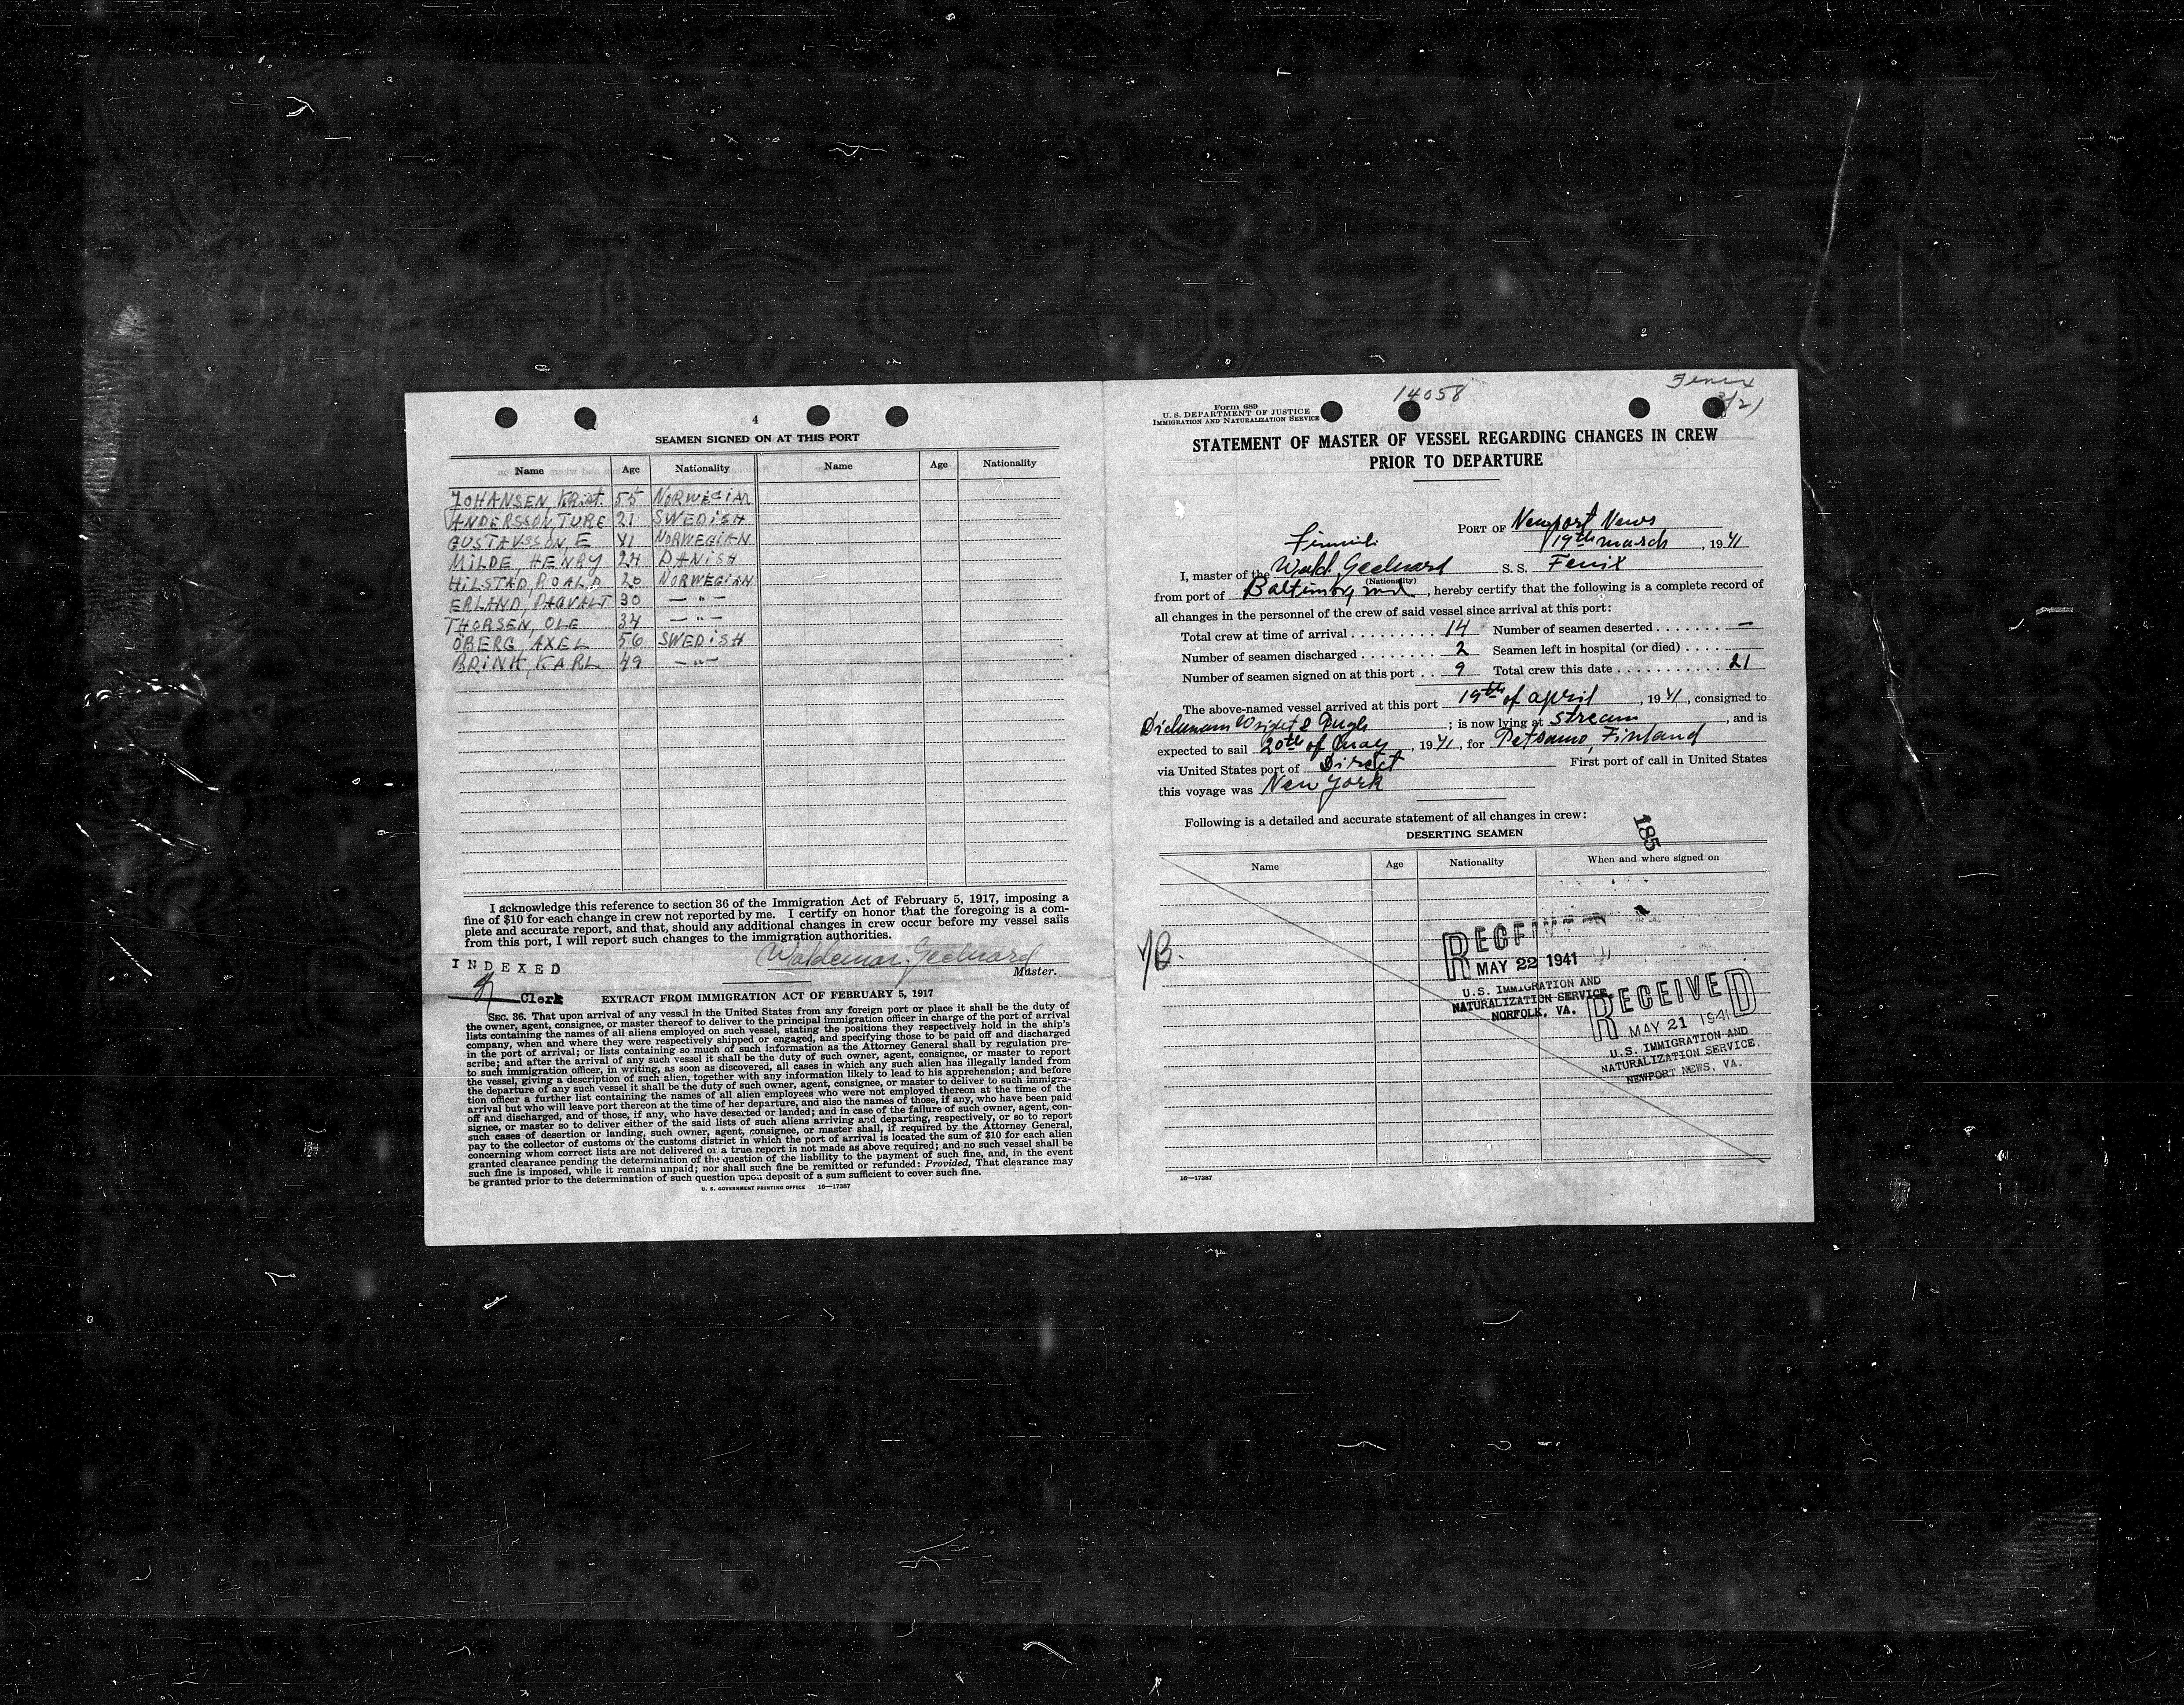 4
SEAMEN SIGNED ON AT THIS PORT
Name Age Nationality Name Age Nationality
JOHANSEN, KRist. 55 NORWEGIAN
ANDERSSON, TURE 21 SWEDISH
GUSTAVSSON, E 41 NORWEGIAN
MILDE, HENRY 24 DANISH
HILSTAD, ROALD 20 NORWEGIAN
ERLAND, DAGVALT 30 — " —
THORSEN, OLE 34 — " —
ÖBERG, AXEL 56 SWEDISH
BRINK, KARL 49 — " —
I acknowledge this reference to section 36 of the Immigration Act of February 5, 1917, imposing a
fine of $10 for each change in crew not reported by me. I certify on honor that the foregoing is a com-
plete and accurate report, and that, should any additional changes in crew occur before my vessel sails
from this port, I will report such changes to the immigration authorities.
INDEXED
Waldemar
Master.
Clerk
EXTRACT FROM IMMIGRATION ACT OF FEBRUARY 5, 1917
SEC. 36. That upon arrival of any vessel in the United States from any foreign port or place it shall be the duty of
the owner, agent, consignee, or master thereof to deliver to the principal immigration officer in charge of the port of arrival
lists containing the names of all aliens employed on such vessel, stating the positions they respectively hold in the ship's
company, when and where they were respectively shipped or engaged, and specifying those to be paid off and discharged
in the port of arrival; or lists containing so much of such information as the Attorney General shall by regulation pre-
scribe; and after the arrival of any such vessel it shall be the duty of such owner, agent, consignee, or master to report
to such immigration officer, in writing, as soon as discovered, all cases in which any such alien has illegally landed from
the vessel, giving a description of such alien, together with any information likely to lead to his apprehension; and before
the departure of any such vessel it shall be the duty of such owner, agent, consignee, or master to deliver to such immigra-
tion officer a further list containing the names of all alien employees who were not employed thereon at the time of the
arrival but who will leave port thereon at the time of her departure, and also the names of those, if any, who have been paid
off and discharged, and of those, if any, who have deserted or landed; and in case of the failure of such owner, agent, con-
signee, or master so to deliver either of the said lists of such aliens arriving and departing, respectively, or so to report
such cases of desertion or landing, such owner, agent, consignee, or master shall, if required by the Attorney General,
pay to the collector of customs of the customs district in which the port of arrival is located the sum of $10 for each alien
concerning whom correct lists are not delivered or a true report is not made as above required; and no such vessel shall be
granted clearance pending the determination of the question of the liability to the payment of such fine, and, in the event
such fine is imposed, while it remains unpaid; nor shall such fine be remitted or refunded: Provided, That clearance may
be granted prior to the determination of such question upon deposit of a sum sufficient to cover such fine.
U. S. GOVERNMENT PRINTING OFFICE 16—17387
Form 689
U. S. DEPARTMENT OF JUSTICE
IMMIGRATION AND NATURALIZATION SERVICE
14058
Fenix
/21
STATEMENT OF MASTER OF VESSEL REGARDING CHANGES IN CREW
PRIOR TO DEPARTURE
PORT OF Newport News
19th march, 1941
I, master of the Wald. S. S. Fenix
(Nationality)
from port of Baltimore, md, hereby certify that the following is a complete record of
all changes in the personnel of the crew of said vessel since arrival at this port:
Total crew at time of arrival 14 Number of seamen deserted —
Number of seamen discharged 2 Seamen left in hospital (or died)
Number of seamen signed on at this port 9 Total crew this date 21
The above-named vessel arrived at this port 19th of april, 1941, consigned to
Wright & ; is now lying at stream, and is
expected to sail 20th of May, 1941, for Petsamo, Finland
via United States port of Direct First port of call in United States
this voyage was New York
Following is a detailed and accurate statement of all changes in crew:
185
DESERTING SEAMEN
Name Age Nationality When and where signed on
RECEIVED
MAY 22 1941
U.S. IMMIGRATION AND
NATURALIZATION SERVICE,
NORFOLK, VA.
RECEIVED
MAY 21 1941
U.S. IMMIGRATION AND
NATURALIZATION SERVICE,
NEWPORT NEWS, VA.
16—17387